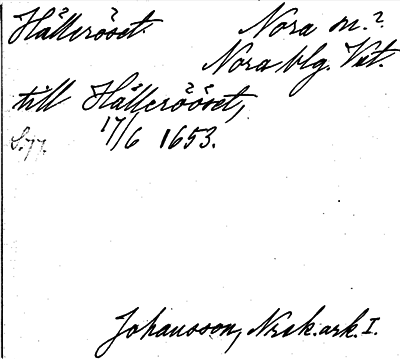 Hällerööet. Nora sn.?
Nora blg. Vstm.
till Hällerööet,
17/6 1653.
S. 77.
Johansson, Norsk. ark. I.